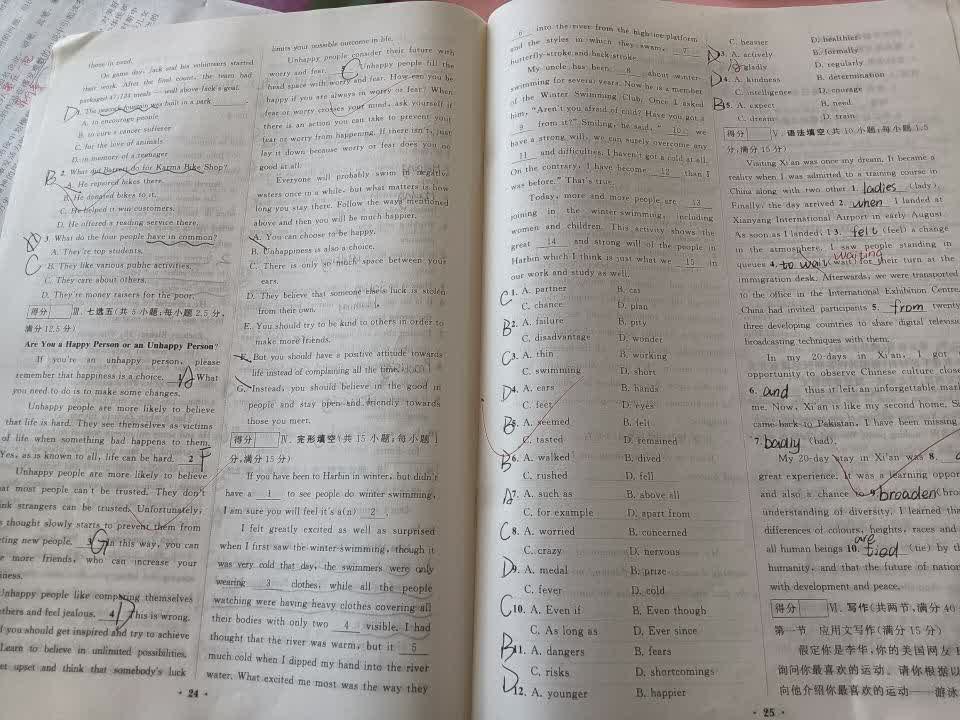 these in need.
On game day, Jack and his volunteers started
their work. After the final count, the team had
packaged 47,121 meals — well above Jack's goal.
D 1. The peacock fountain was built in a park ____.
A. to encourage people
B. to cure a cancer sufferer
C. for the love of animals
D. in memory of a teenager
B 2. What did Barrett do for Karma Bike Shop?
A. He repaired bikes there.
B. He donated bikes to it.
C. He helped it win customers.
D. He offered a reading service there.
C 3. What do the four people have in common?
A. They're top students.
B. They like various public activities.
C. They care about others.
D. They're money raisers for the poor.
得分 Ⅲ. 七选五(共 5 小题;每小题 2.5 分,
满分 12.5 分)
Are You a Happy Person or an Unhappy Person?
If you're an unhappy person, please
remember that happiness is a choice. 1 A What
you need to do is to make some changes.
Unhappy people are more likely to believe
that life is hard. They see themselves as victims
of life when something bad happens to them.
Yes, as is known to all, life can be hard. 2 F
Unhappy people are more likely to believe
that most people can't be trusted. They don't
think strangers can be trusted. Unfortunately,
thought slowly starts to prevent them from
meeting new people. 3 G In this way, you can
more friends, who can increase your
Unhappy people like comparing themselves
others and feel jealous. 4 D This is wrong.
you should get inspired and try to achieve
Learn to believe in unlimited possibilities.
get upset and think that somebody's luck
· 24 ·
limits your possible outcome in life.
Unhappy people consider their future with
worry and fear. C Unhappy people fill the
head space with worry and fear. How can you be
happy if you are always in worry or fear? When
fear or worry crosses your mind, ask yourself if
there is an action you can take to prevent your
fear or worry from happening. If there isn't, just
lay it down because worry or fear does you no
good at all.
Everyone will probably swim in negative
waters once in a while, but what matters is how
long you stay there. Follow the ways mentioned
above and then you will be much happier.
A. You can choose to be happy.
B. Unhappiness is also a choice.
C. There is only so much space between your
ears.
D. They believe that someone else's luck is stolen
from their own.
E. You should try to be kind to others in order to
make more friends.
F. But you should have a positive attitude towards
life instead of complaining all the time.
G. Instead, you should believe in the good in
people and stay open and friendly towards
those you meet.
得分 Ⅳ. 完形填空(共 15 小题;每小题 1
分,满分 15 分)
If you have been to Harbin in winter, but didn't
have a 1 to see people do winter swimming,
I am sure you will feel it's a(n) 2 .
I felt greatly excited as well as surprised
when I first saw the winter swimming, though it
was very cold that day, the swimmers were only
wearing 3 clothes, while all the people
watching were having heavy clothes covering all
their bodies with only two 4 visible. I had
thought that the river was warm, but it 5
much cold when I dipped my hand into the river
water. What excited me most was the way they
6 into the river from the high ice platform
and the styles in which they swam, 7
butterfly stroke and back stroke.
My uncle has been 8 about winter
swimming for several years. Now he is a member
of the Winter Swimming Club. Once I asked
him, "Aren't you afraid of cold? Have you got a
9 from it?" Smiling, he said, " 10 we
have a strong will, we can surely overcome any
11 and difficulties. I haven't got a cold at all.
On the contrary, I have become 12 than I
was before." That's true.
Today, more and more people are 13
joining in the winter swimming, including
women and children. This activity shows the
great 14 and strong will of the people in
Harbin which I think is just what we 15 in
our work and study as well.
C 1. A. partner B. cat
C. chance D. plan
B 2. A. failure B. pity
C. disadvantage D. wonder
C 3. A. thin B. working
C. swimming D. short
D 4. A. ears B. hands
C. feet D. eyes
B 5. A. seemed B. felt
C. tasted D. remained
B 6. A. walked B. dived
C. rushed D. fell
A 7. A. such as B. above all
C. for example D. apart from
C 8. A. worried B. concerned
C. crazy D. nervous
D 9. A. medal B. prize
C. fever D. cold
C 10. A. Even if B. Even though
C. As long as D. Ever since
B 11. A. dangers B. fears
C. risks D. shortcomings
D 12. A. younger B. happier
C. heavier D. healthier
13. A. actively B. formally
C. gladly D. regularly
D 14. A. kindness B. determination
C. intelligence D. courage
B 15. A. expect B. need
C. dream D. train
得分 Ⅴ. 语法填空(共 10 小题;每小题 1.5
分,满分 15 分)
Visiting Xi'an was once my dream. It became a
reality when I was admitted to a training course in
China along with two other 1. ladies (lady).
Finally, the day arrived 2. when I landed at
Xianyang International Airport in early August.
As soon as I landed, I 3. felt (feel) a change
in the atmosphere. I saw people standing in
waiting
queues 4. to wait (wait) for their turn at the
immigration desk. Afterwards, we were transported
to the office in the International Exhibition Centre.
China had invited participants 5. from twenty
three developing countries to share digital televisio
broadcasting techniques with them.
In my 20-days in Xi'an, I got
opportunity to observe Chinese culture close
6. and thus it left an unforgettable mark
me. Now, Xi'an is like my second home. S
came back to Pakistan, I have been missing
7. badly (bad).
My 20-day stay in Xi'an was 8. a
great experience. It was a learning opport
and also a chance to 9. broaden (bro
understanding of diversity. I learned tha
differences of colours, heights, races and
are
all human beings 10. tied (tie) by th
humanity, and that the future of natio
with development and peace.
得分 Ⅵ. 写作(共两节,满分 40
第一节 应用文写作(满分 15 分)
假定你是李华,你的美国网友
询问你最喜欢的运动。请你根据以
向他介绍你最喜欢的运动——游泳
· 25 ·